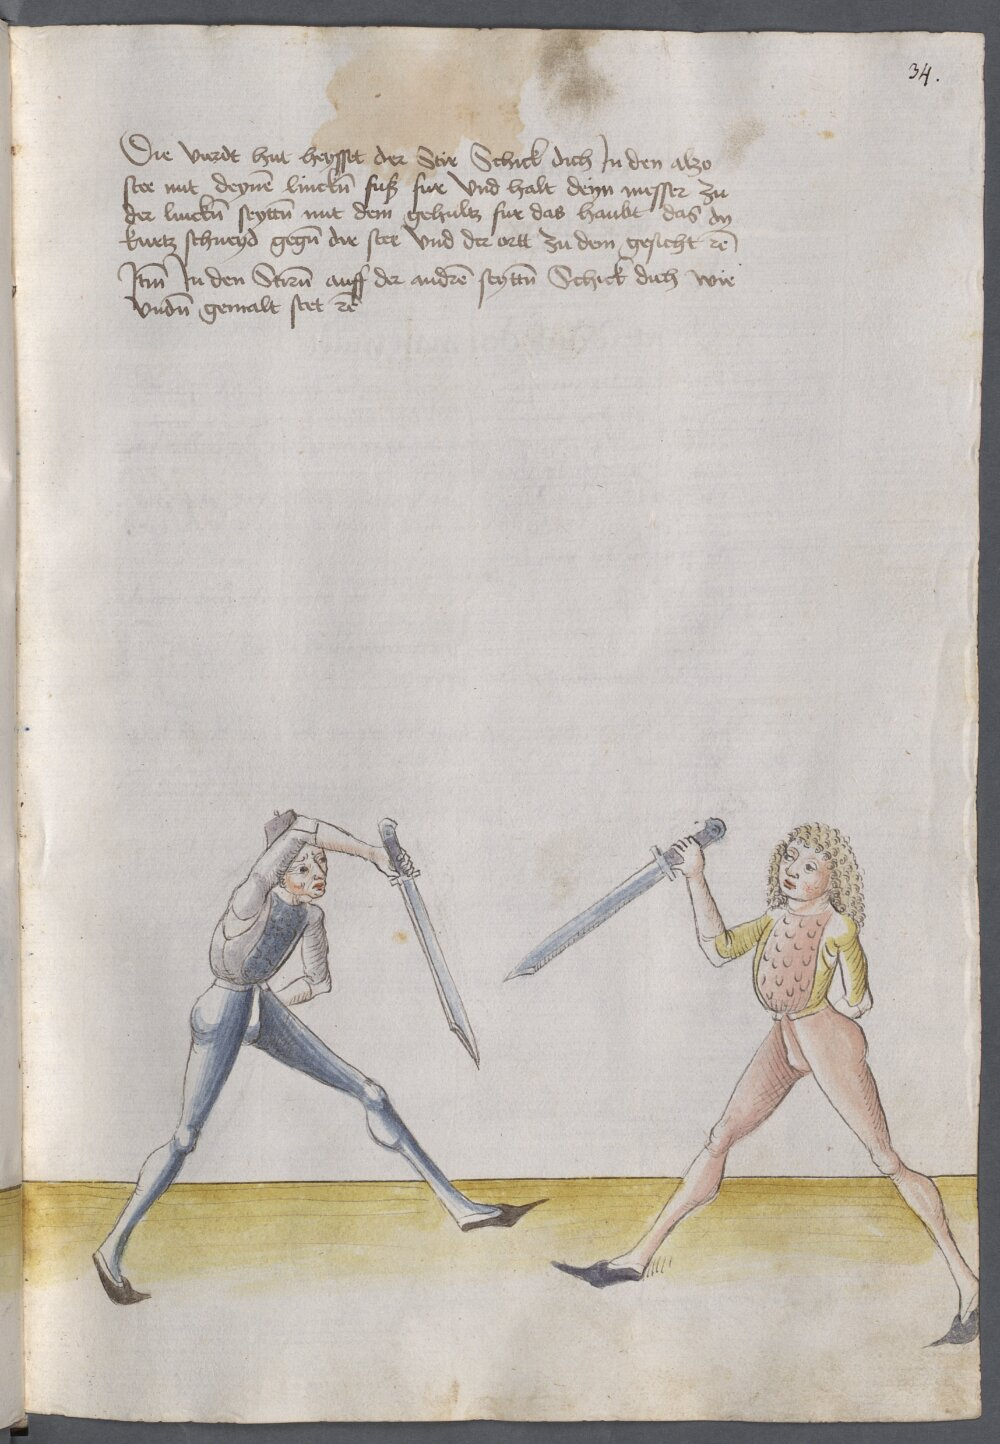 34.
Die vierdt hut heysset der Stir Schick dich In den alzo
stee mit deyne͂ linck͂n fuß fur vnd halt deyn messer zu
der linck͂n seytt͂n mit dem gehultz fur das haubt das dy
kurtz schneyd geg͂n dir stee vnd der ortt zu dem gesicht ꝛc͂
Itm͂ In den Stirn͂ auff der andre͂ seytt͂n Schick dich wie
vnd͂n gemalt stet ꝛc͂